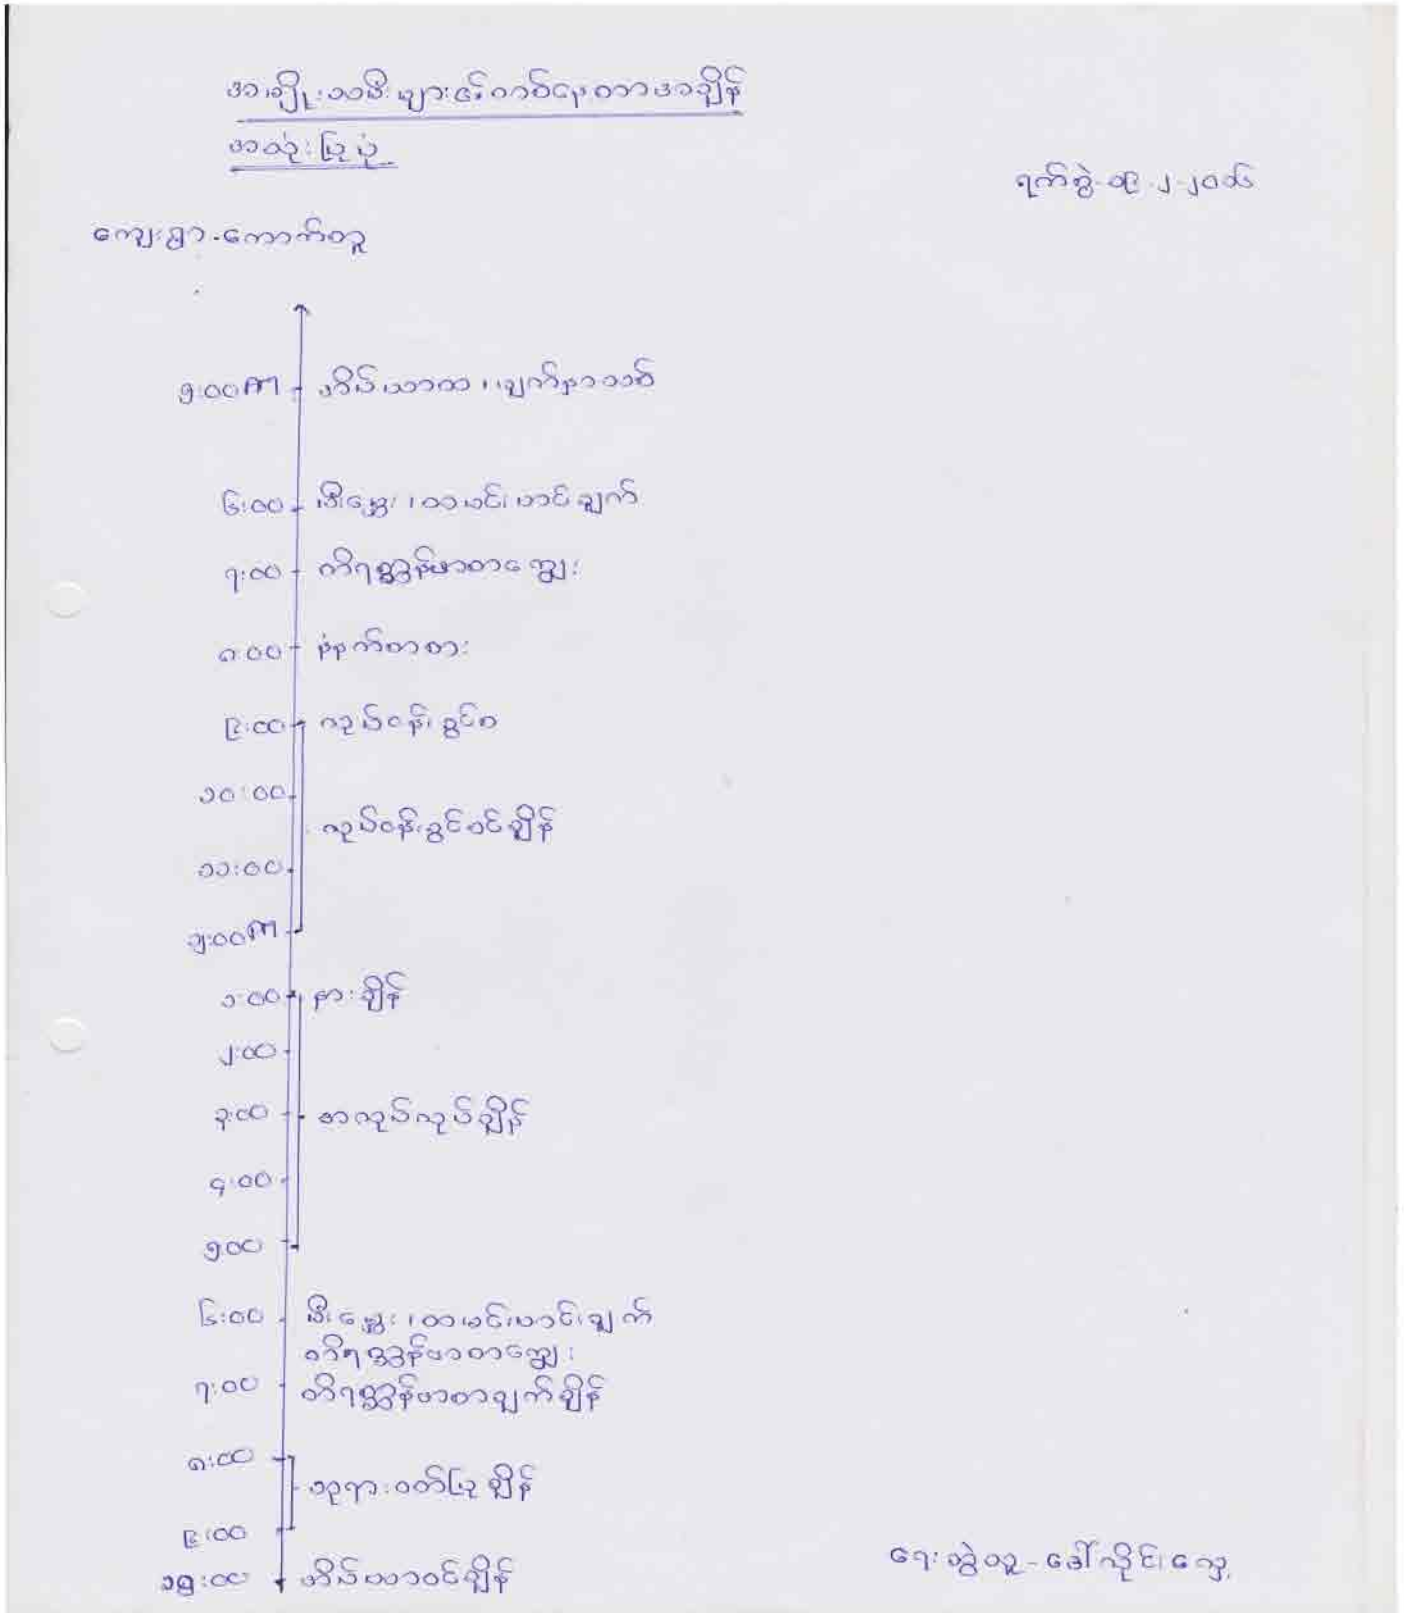 အမျိုးသမီးများ၏တစ်နေ့တာအချိန်
အသုံးပြုပုံ
ရက်စွဲ-၁၉-၂-၂၀၁၆
ကျေးရွာ-ကောက်တူ
၅:၀၀ အိပ်ယာထ၊ မျက်နှာသစ်
၆:၀၀ မီးမွှေး၊ ထမင်းဟင်းချက်
၇:၀၀ တိရစ္ဆာန်စာကျွေး
၈:၀၀ နံနက်စာစား
၉:၀၀ လုပ်ငန်းခွင်စ
၁၀:၀၀
လုပ်ငန်းခွင်ဝင်ချိန်
၁၁:၀၀
၁၂:၀၀
၁:၀၀ နားချိန်
၂:၀၀
၃:၀၀ အလုပ်လုပ်ချိန်
၄:၀၀
၅:၀၀
၆:၀၀ မီးမွှေး၊ ထမင်းဟင်းချက်
တိရစ္ဆာန်စာကျွေး
၇:၀၀ တိရစ္ဆာန်စာချက်ချိန်
၈:၀၀
ဘုရားဝတ်ပြုချိန်
၉:၀၀
၁၀:၀၀ အိပ်ယာဝင်ချိန်
ရေးဆွဲသူ-ဒေါ်လှိုင်